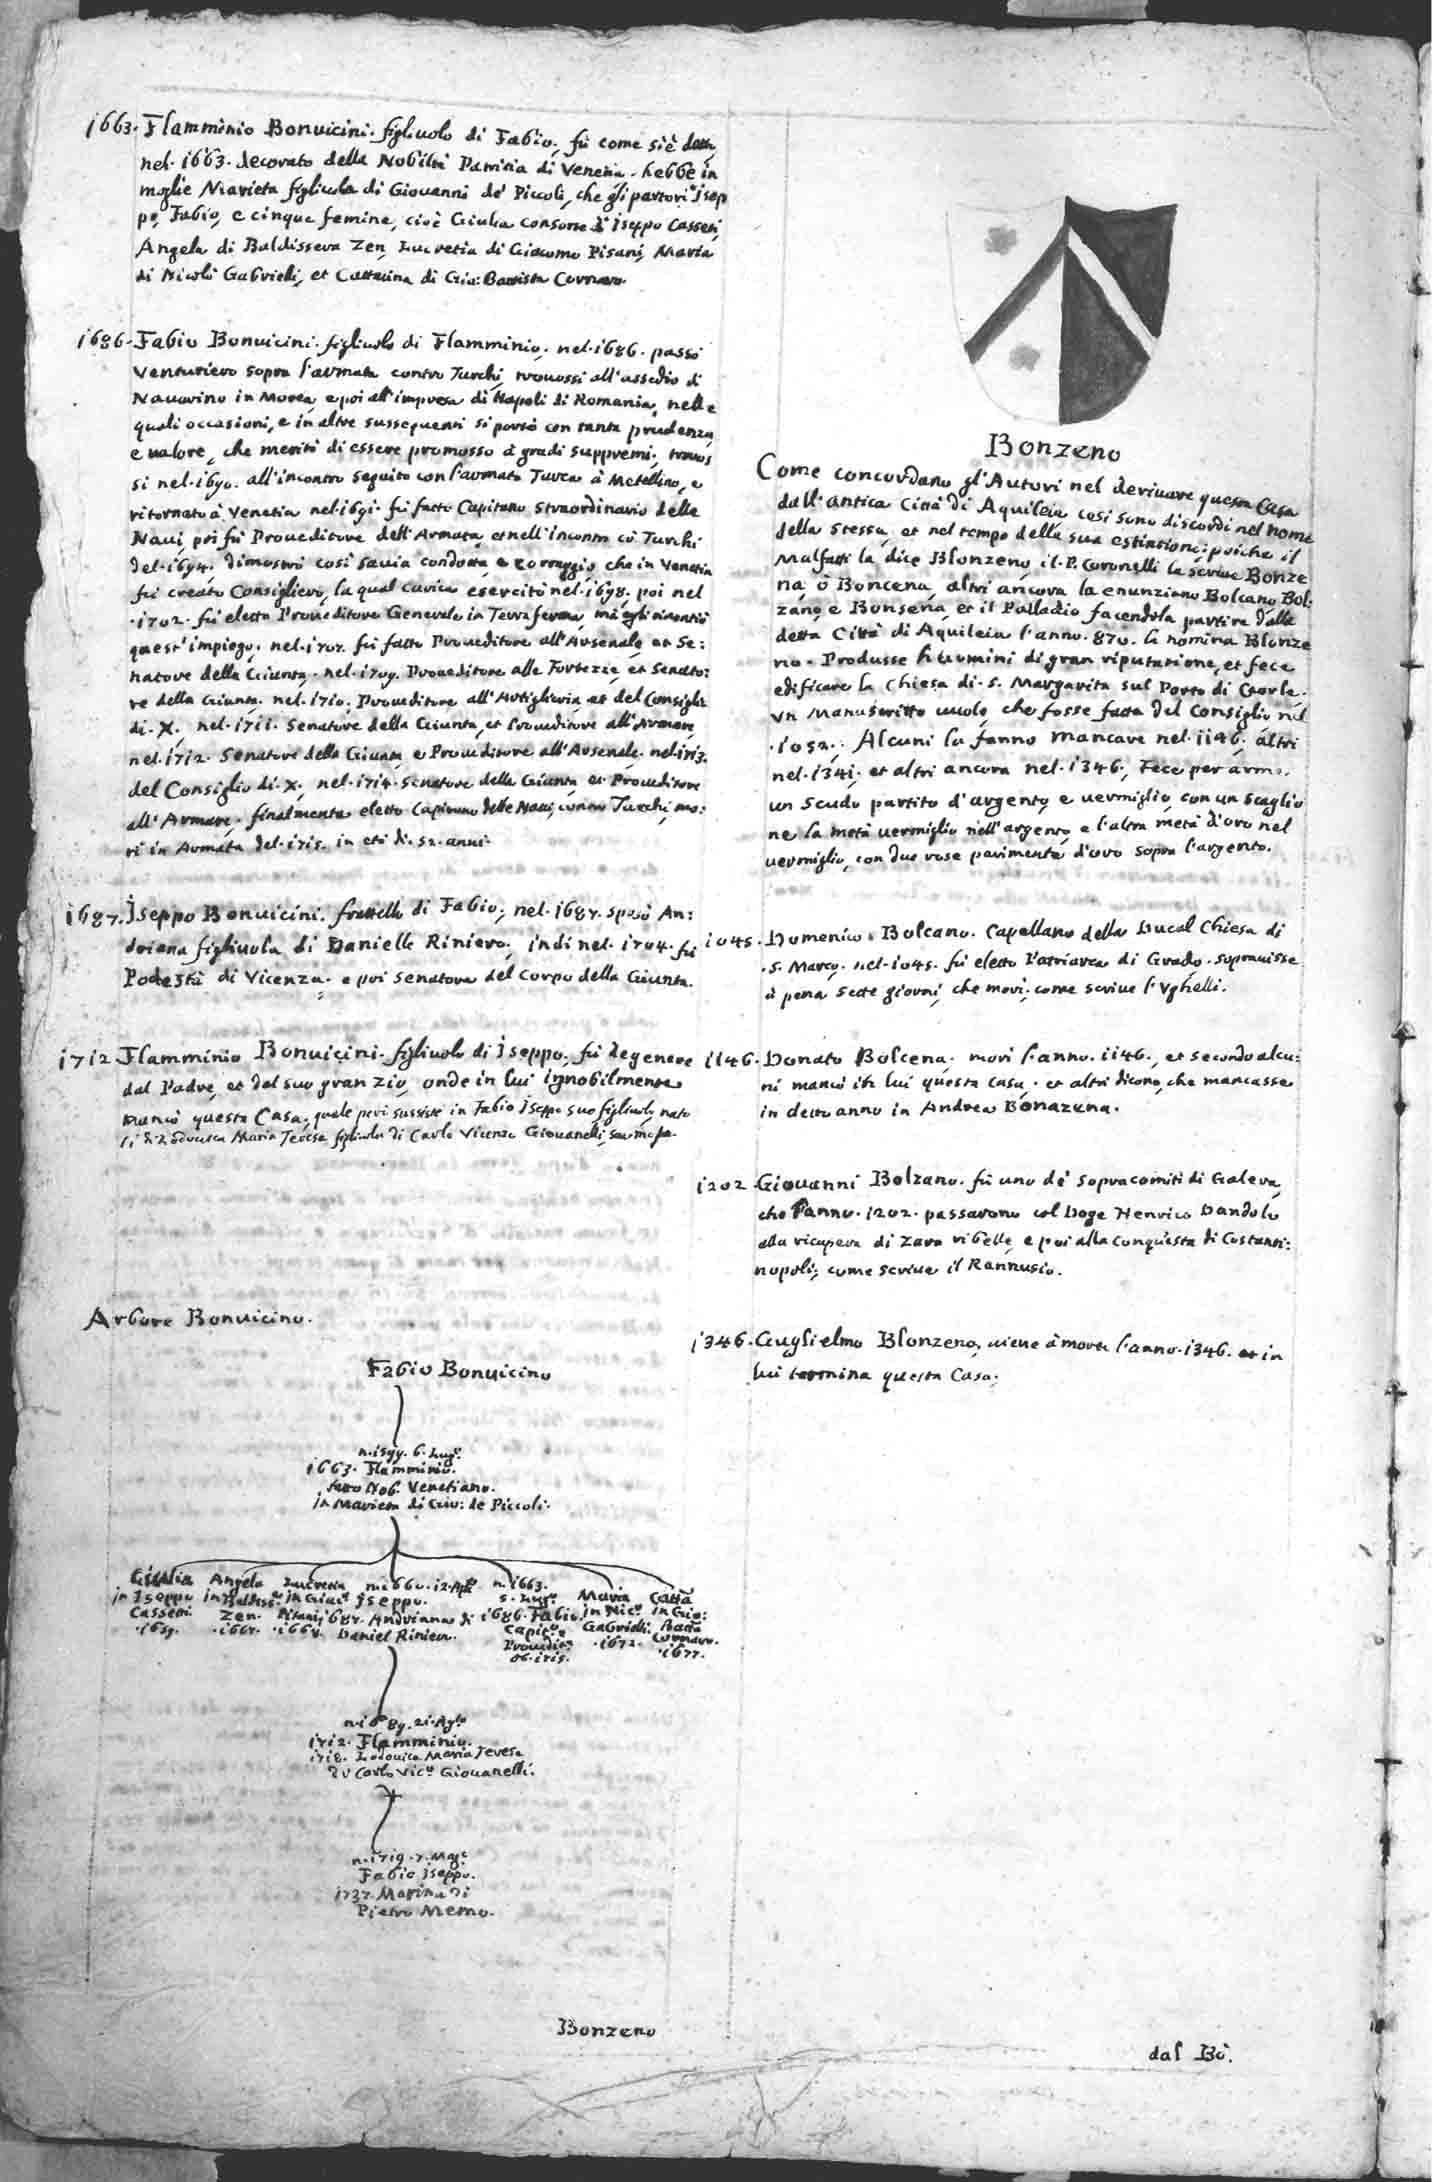 1663. Flamminio Bonuicini. figliuolo di Fabio, fù come si è detto,
nel. 1663. decorato della Nobiltà Patritia di Venetia. hebbe in
moglie Marieta figliuola di Giouanni de' Piccoli, che gli partorì Isep
po, Fabio, e cinque femine, cioè Giulia consorte d'Iseppo Casseti,
Angela di Baldissera Zen, Lucretia di Giacomo Pisani, Maria
di Nicolò Gabrielli, et Cattarina di Gio: Battista Cornaro.
1686. Fabio Bonuicini. figliuolo di Flamminio. nel. 1686. passò
Venturiero sopra l'armata contro Turchi, trouossi all'assedio di
Nauarino in Morea, e poi all'impresa di Napoli di Romania, nelle
quali occasioni, e in altre susseguenti si portò con tanta prudenza,
e valore, che meritò di essere promosso à gradi suppremi. trouos
si nel. 1690. all'incontro seguito con l'armata Turca à Metellino, e
ritornato à Venetia nel. 1691. fù fatto Capitano straordinario delle
Naui, poi fù Proueditore dell'Armata, et nell'incontro co' Turchi
del. 1694. dimostrò così sauia condotta, e corraggio, che in Venetia
fù creato Consigliero, la qual carica esercitò nel. 1698. poi nel
. 1702. fù eletto Proueditore Generale in Terra ferma, mà egli rinontiò
quest'impiego. nel. 1707. fù fatto Proueditore all'Arsenale, et Se:
natore della Giunta. nel. 1709. Proueditore alle Fortezze, et Senato:
re della Giunta. nel. 1710. Proueditore all'Artiglieria, et del Consiglio
di. X. nel. 1711. Senatore della Giunta, et Proueditore all'Armare,
nel. 1712. Senatore della Giunta, e Proueditore all'Arsenale. nel. 1713.
del Consiglio di. X. nel. 1714. Senatore della Giunta, et Proueditore
all'Armare. finalmente eletto Capitano delle Naui, contro Turchi, mo:
rì in Armata del. 1715. in età di. 52. anni.
1687. Iseppo Bonuicini. frattello di Fabio, nel. 1687. sposò An:
driana figliuola di Danielle Riniero. indi nel. 1704. fù
Podestà di Vicenza. e poi senatore del corpo della Giunta.
1712. Flamminio Bonuicini. figliuolo di Iseppo, fù degenere
dal Padre, et dal suo gran zio, onde in lui ignobilmente
mancò questa Casa, quale però sussiste in Fabio Iseppo suo figliuolo, nato
Maria Teresa figliuola di Carlo Vicenzo Giouanelli, sua moglie.
Arbore Bonuicino.
Fabio Bonuicino
n. 1599. 6. Lugo.
1663. Flamminio.
fatto Nob. Venetiano.
in Marieta di Gio: de Piccoli.
Giulia
in Iseppo
Casseti.
. 1659.
Angela
in Baldissa.
Zen.
. 1667.
Lucretia
in Giaco.
Pisani
. 1668.
n. 1660. 12. Aple.
Iseppo.
1687. Andrianna di
Daniel Rinier.
n. 1663.
5. Lugo.
1686. Fabio.
Capito. e
Proudite.
ob. 1715.
Maria
in Nico.
Gabrielli.
. 1672.
Catta
in Gio:
Batta
Cornaro.
. 1677.
n. 1689. 21. Agto.
1712. Flamminio.
1718. Lodouica Maria Teresa
di Carlo Vico. Giouanelli.
n. 1719. 7. Mago.
Fabio Iseppo.
1737. Marina di
Pietro Memo.
Bonzeno
Bonzeno
Come concordano gl'Autori nel deriuare questa Casa
dall'antica Città di Aquileia così sono discordi nel nome
della stessa, et nel tempo della sua estintione; poiche il
Malfatti la dice Blonzeno, il. P. Coronelli la scriue Bonze
na, ò Boncena, altri ancora la enunziano Bolcano, Bol:
zano, e Bonsena, et il Palladio facendola partire dalla
detta Città di Aquileia l'anno. 870. la nomina Blonze
no. Produsse huomini di gran riputatione, et fece
edificare la Chiesa di. S. Margarita sul Porto di Caorle.
Vn Manuscritto vuole, che fosse fatta del Consiglio nel
. 1052. Alcuni la fanno mancare nel. 1146. altri
nel. 1341. et altri ancora nel. 1346. Fece per arma.
un scudo partito d'argento, e vermiglio, con un scaglio
ne la metà vermiglio nell'argento, e l'altra metà d'oro nel
vermiglio, con due rose parimente d'oro sopra l'argento.
1045. Domenico Bolcano. Capellano della Ducal Chiesa di
. S. Marco. nel. 1045. fù eletto Patriarca di Grado. soprauisse
à pena sette giorni, che morì. come scriue l'Vghelli.
1146. Donato Bolcena. morì l'anno. 1146. et secondo alcu:
ni mancò in lui questa casa. et altri dicono, che mancasse
in detto anno in Andrea Bonazena.
1202. Giouanni Bolzano. fù uno de' sopracomiti di Galera,
che l'anno. 1202. passarono col Doge Henrico Dandolo
alla ricupera di Zara ribelle, e poi alla conquista di Costanti:
nopoli, come scriue il Rannusio.
1346. Guglielmo Blonzeno, viene à morte l'anno. 1346. et in
lui termina questa Casa.
dal Bò.